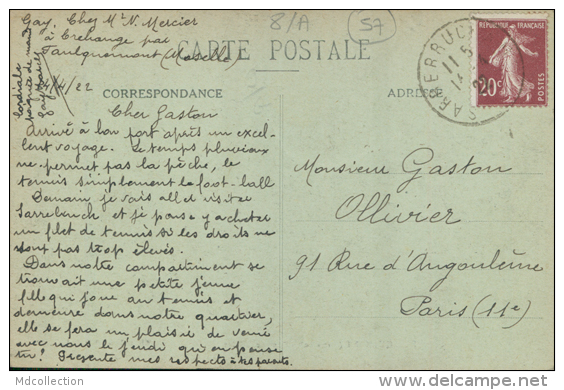 Gay, Chez Mr N. Mercier
à Créhange par
Faulquemont (Moselle)
14/4/22
8/A
57
CARTE POSTALE
CORRESPONDANCE
ADRESSE
REPUBLIQUE FRANÇAISE
20c
POSTES
Cher Gaston
Arrivé à bon port après un excel-
lent voyage. Le temps pluvieux
ne permet pas la pêche, le
tennis simplement le foot-ball
Demain je vais aller visiter
Sarrebruck et je pense y acheter
un filet de tennis si les droits ne
sont pas trop élevés.
Dans notre compartiment se
trouvait une petite jeune
fille qui joue au tennis et
demeure dans notre quartier,
elle se fera un plaisir de venir
avec nous le jeudi qu'en penses
tu! Présente mes respects à tes parents.
Monsieur Gaston
Ollivier
91 Rue d'Angoulême
Paris (11e)
MdCollection
delcampe.net